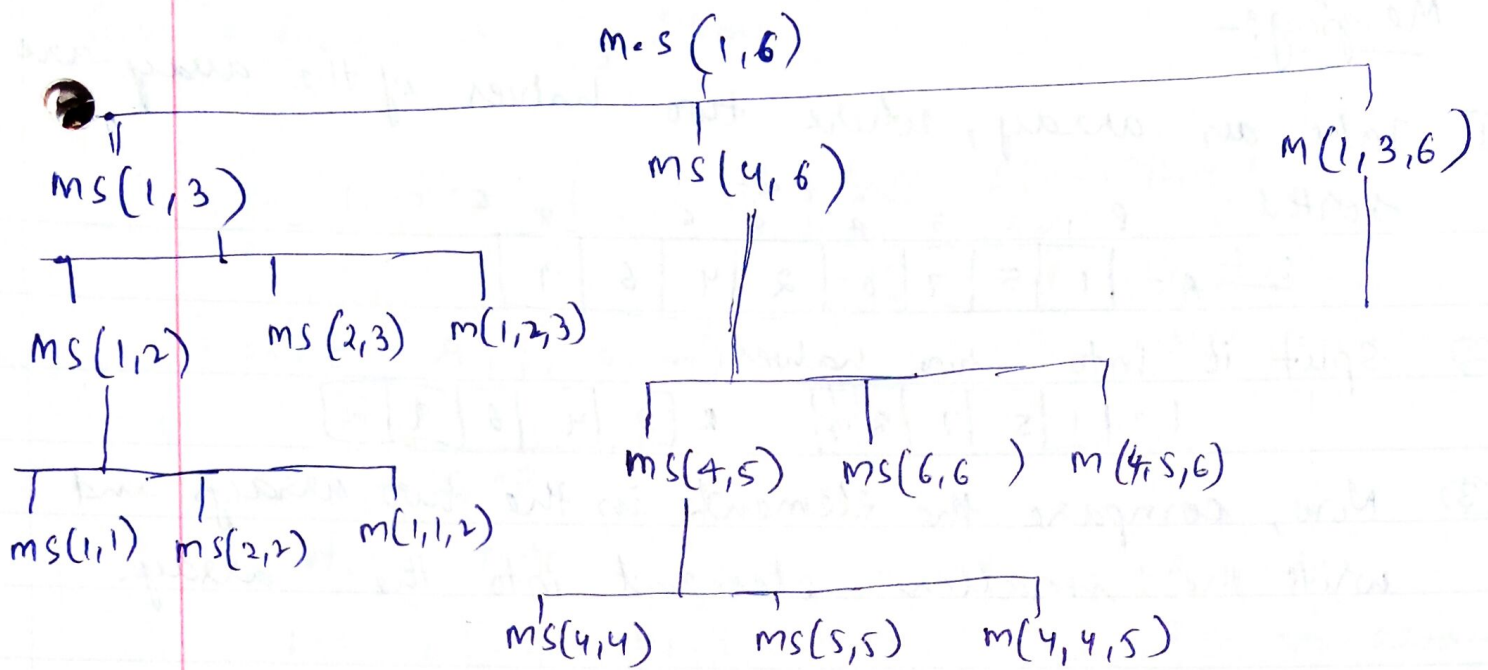 m.s (1,6)
ms(1,3) ms(4,6) m(1,3,6)
ms(1,2) ms(2,3) m(1,2,3)
ms(4,5) ms(6,6) m(4,5,6)
ms(1,1) ms(2,2) m(1,1,2)
ms(4,4) ms(5,5) m(4,4,5)